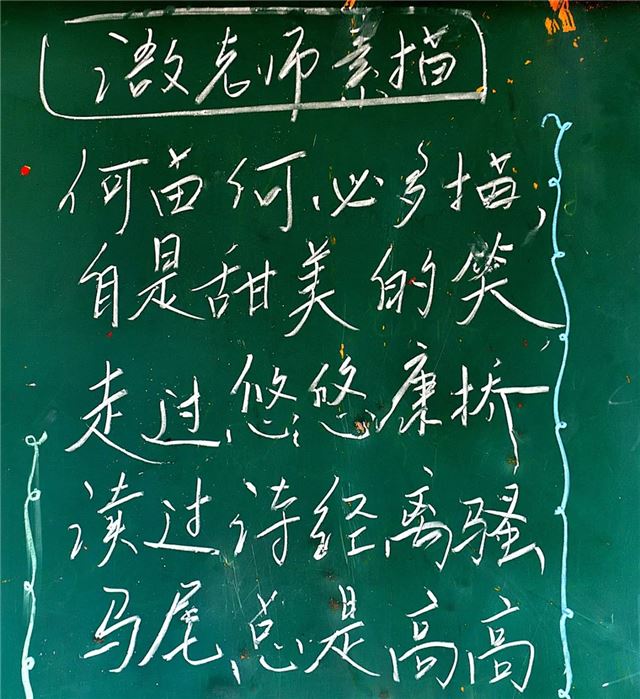 老师素描
何苗何必多描,
自是甜美的笑
走过悠悠康桥
读过诗经离骚
马尾总是高高